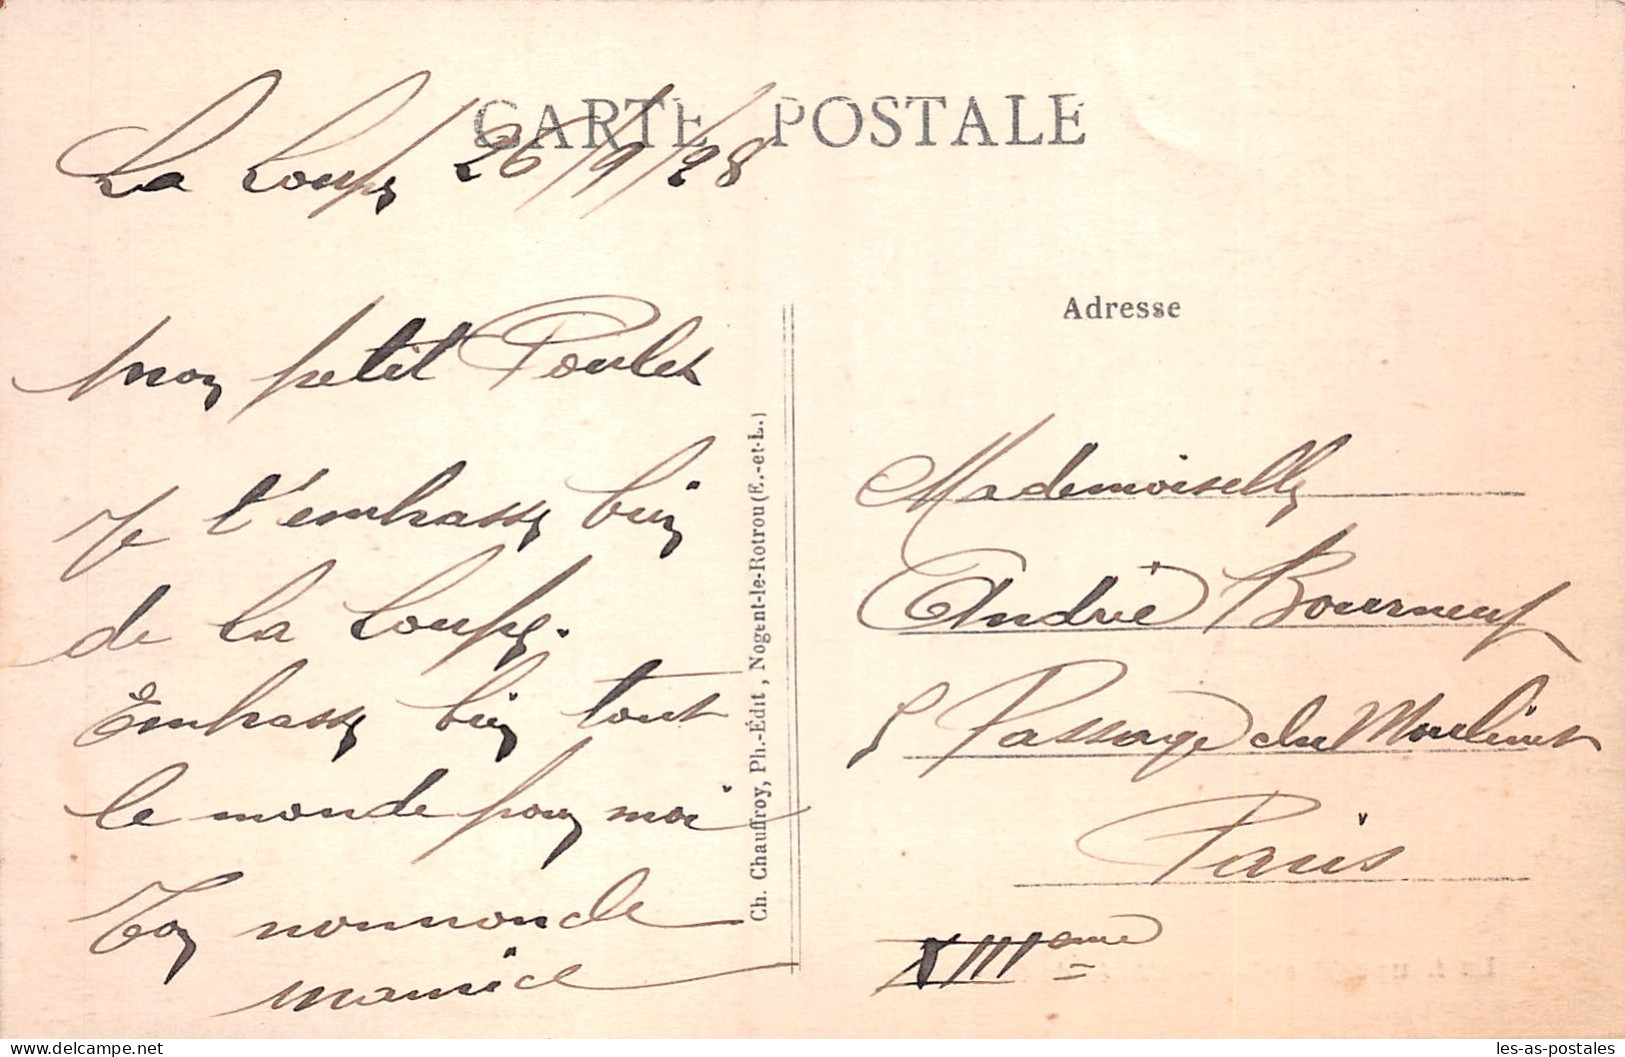 CARTE POSTALE
La Loupe 26/9/28
Mon petit Poulet
Je t'embrasse bien
de La Loupe.
Embrasse bien tout
le monde pour moi
Ton nononcle
Maurice
Ch. Chauffroy, Ph.-Édit, Nogent-le-Rotrou (E.-et-L.)
Adresse
Mademoiselle
Andrée Bourneuf
5 Passage du Moulinet
Paris
XIIIeme
les-as-postales
delcampe.net